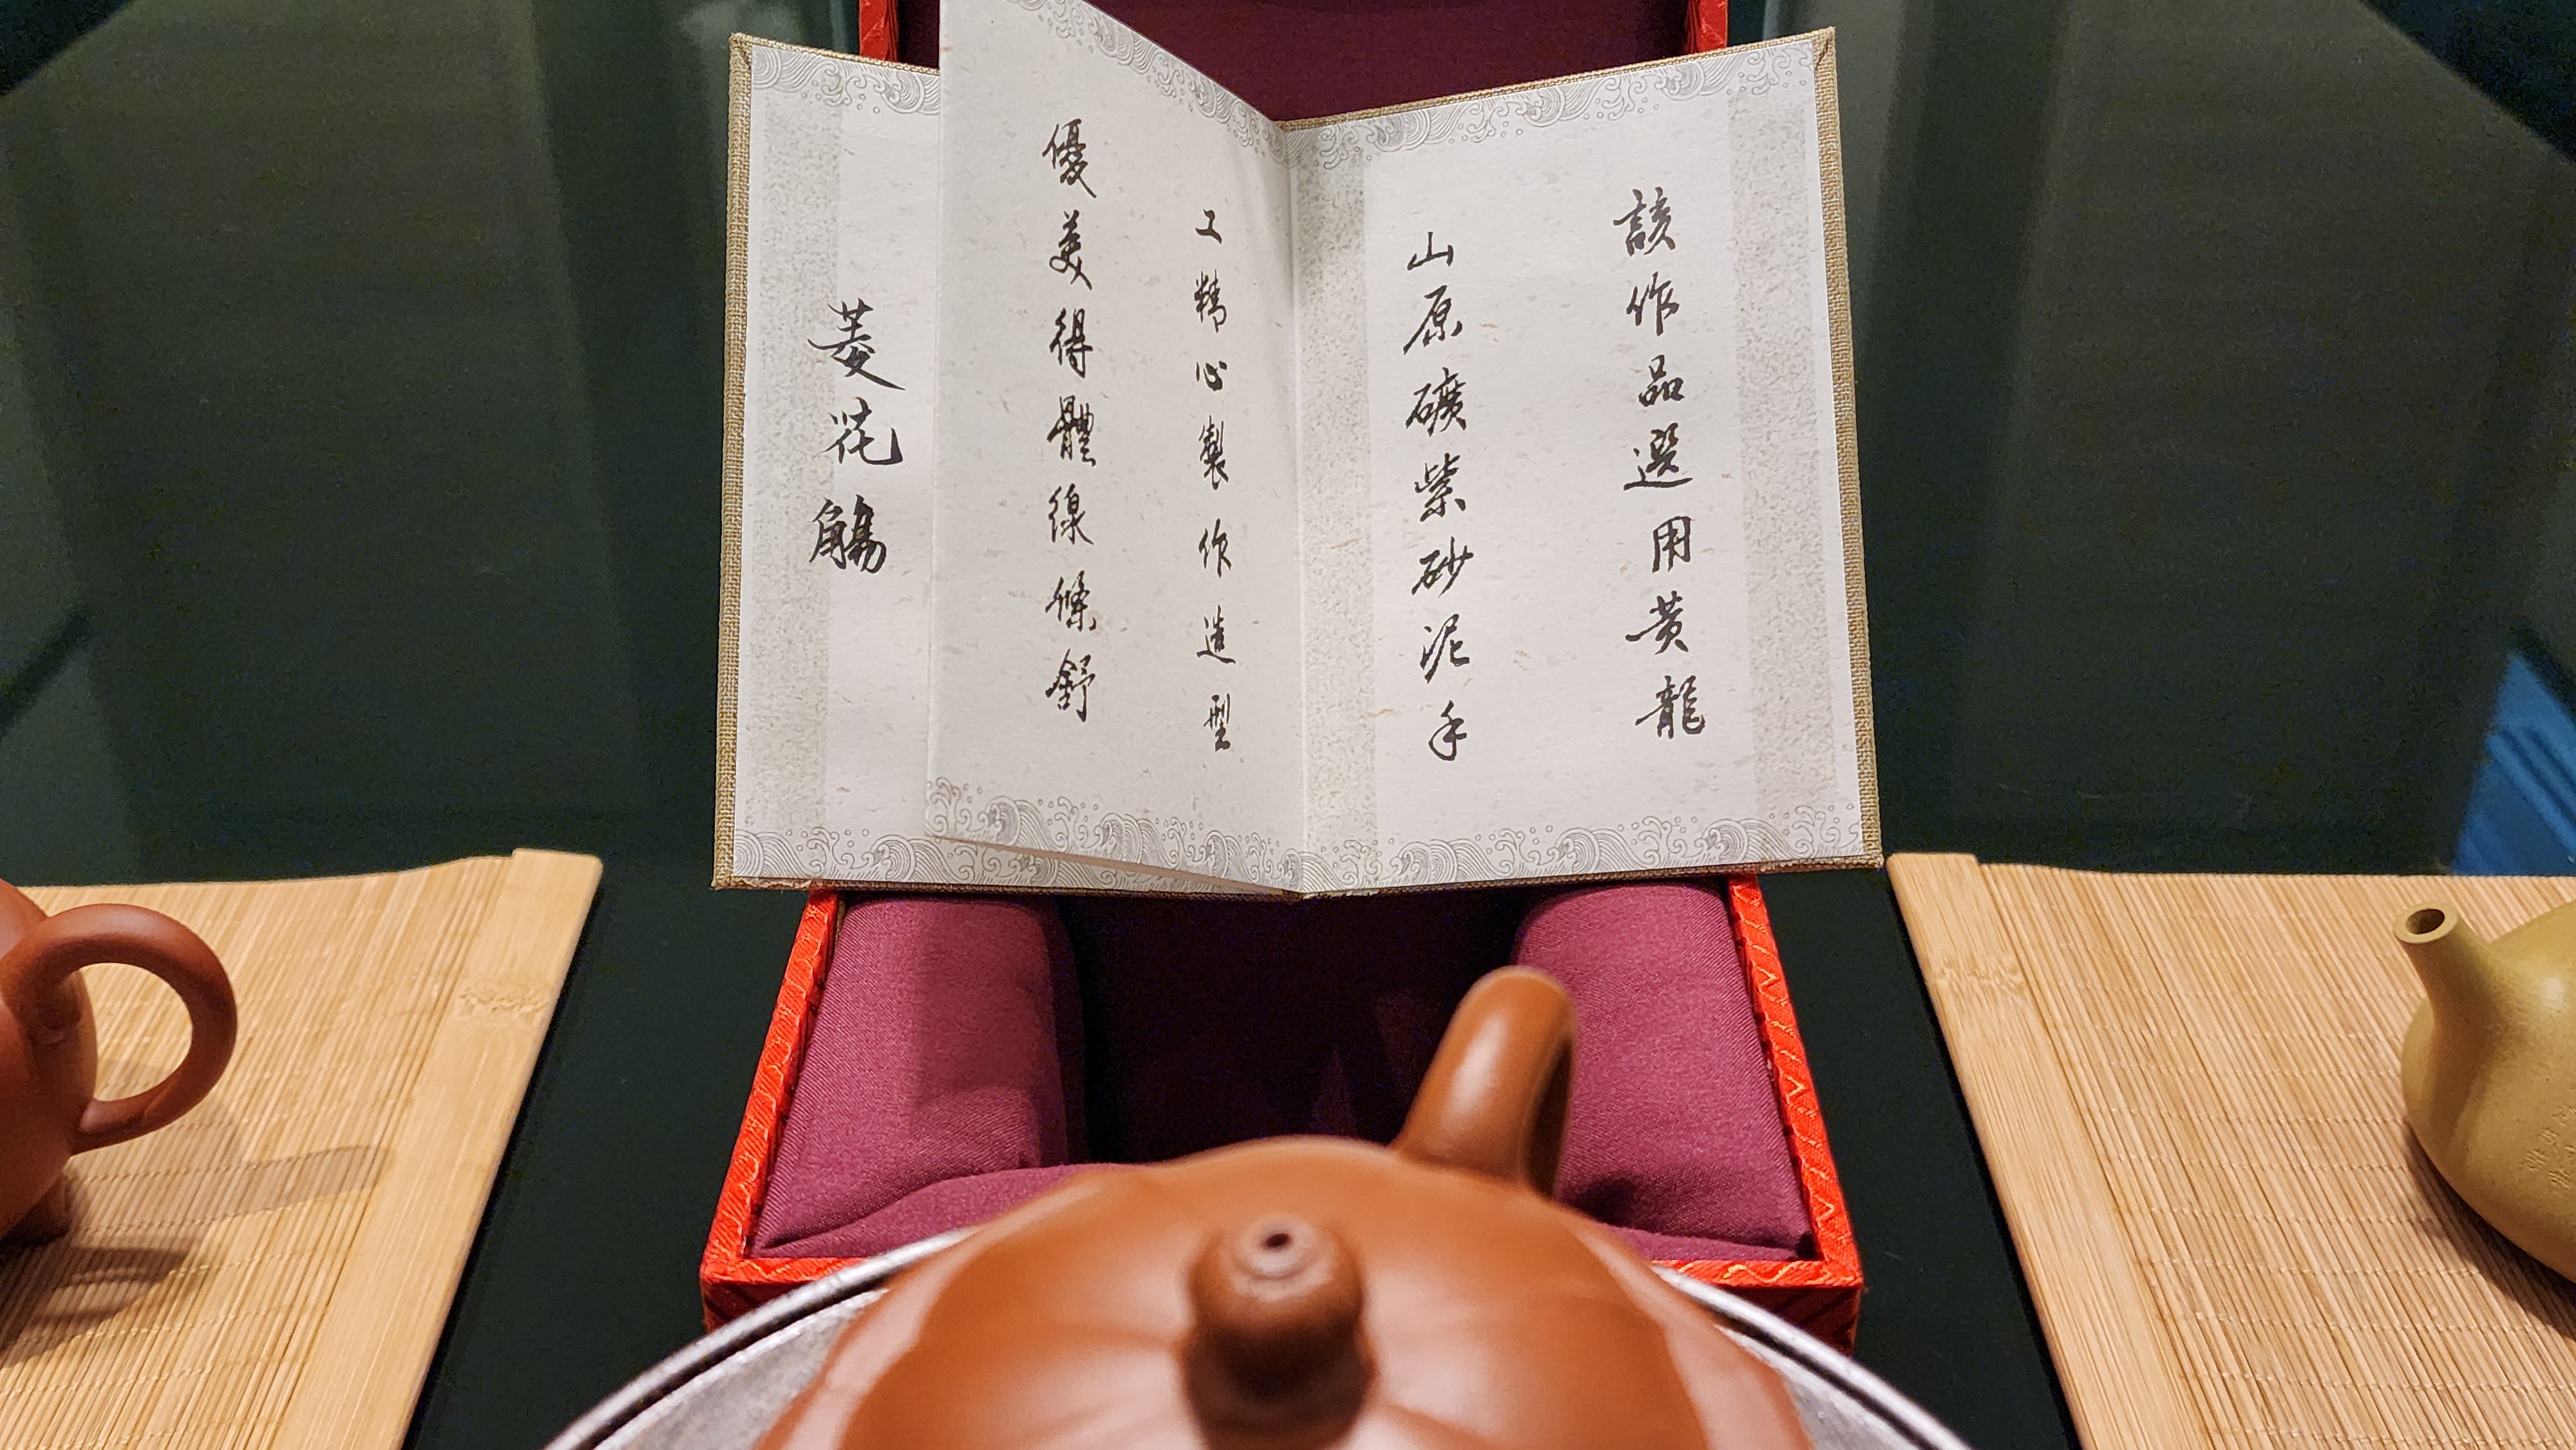 該作品選用黃龍
山原礦紫砂泥手
工精心製作造型
優美得體線條舒
菱花觴